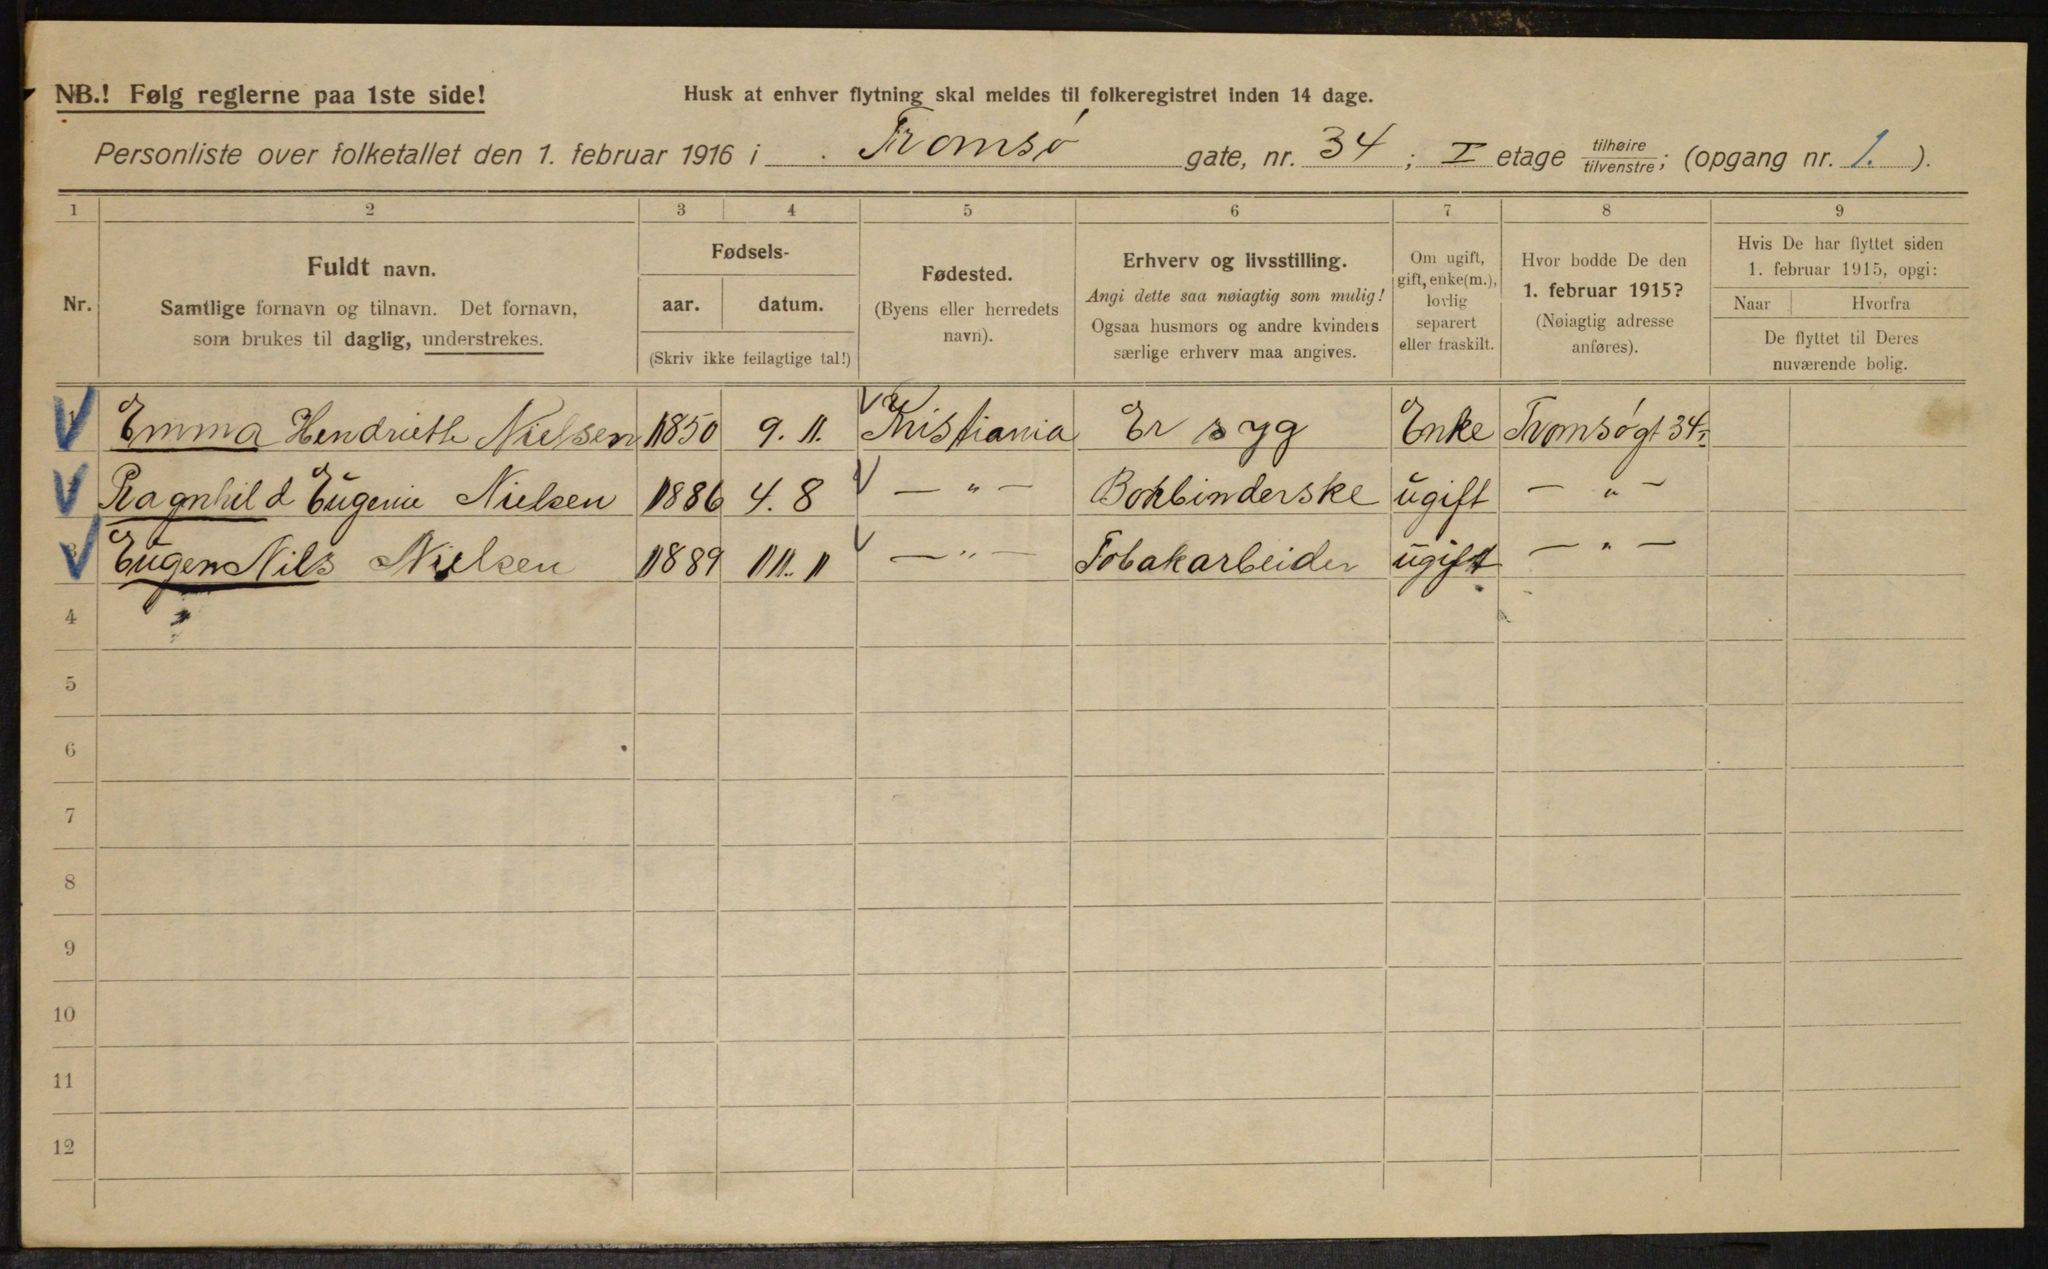 NB.! Følg reglerne paa 1ste side!
Husk at enhver flytning skal meldes til folkeregistret inden 14 dage.
Personliste over folketallet den 1. februar 1916 i Tromsø gate, nr. 34; I etage tilhøire/tilvenstre; (opgang nr. 1.).
1 2 3 4 5 6 7 8 9
Nr.
Fuldt navn.
Samtlige fornavn og tilnavn. Det fornavn,
som brukes til daglig, understrekes.
Fødsels-
aar. datum.
(Skriv ikke feilagtige tal!)
Fødested.
(Byens eller herredets
navn).
Erhverv og livsstilling.
Angi dette saa nøiagtig som mulig!
Ogsaa husmors og andre kvinders
særlige erhverv maa angives.
Om ugift,
gift, enke(m.),
lovlig
separert
eller fraskilt.
Hvor bodde De den
1. februar 1915?
(Nøiagtig adresse
anføres).
Hvis De har flyttet siden
1. februar 1915, opgi:
Naar Hvorfra
De flyttet til Deres
nuværende bolig.
Emma Hendrieth Nielsen 1850 9. 11. Kristiania Er syg Enke Tromsøgt 34
Ragnhild Eugenie Nielsen 1886 4. 8 — " — Bokbinderske ugift — " —
3 Eugen Nils Nielsen 1889 — " — Tobakarbeider ugift — " —
4
5
6
7
8
9
10
11
12